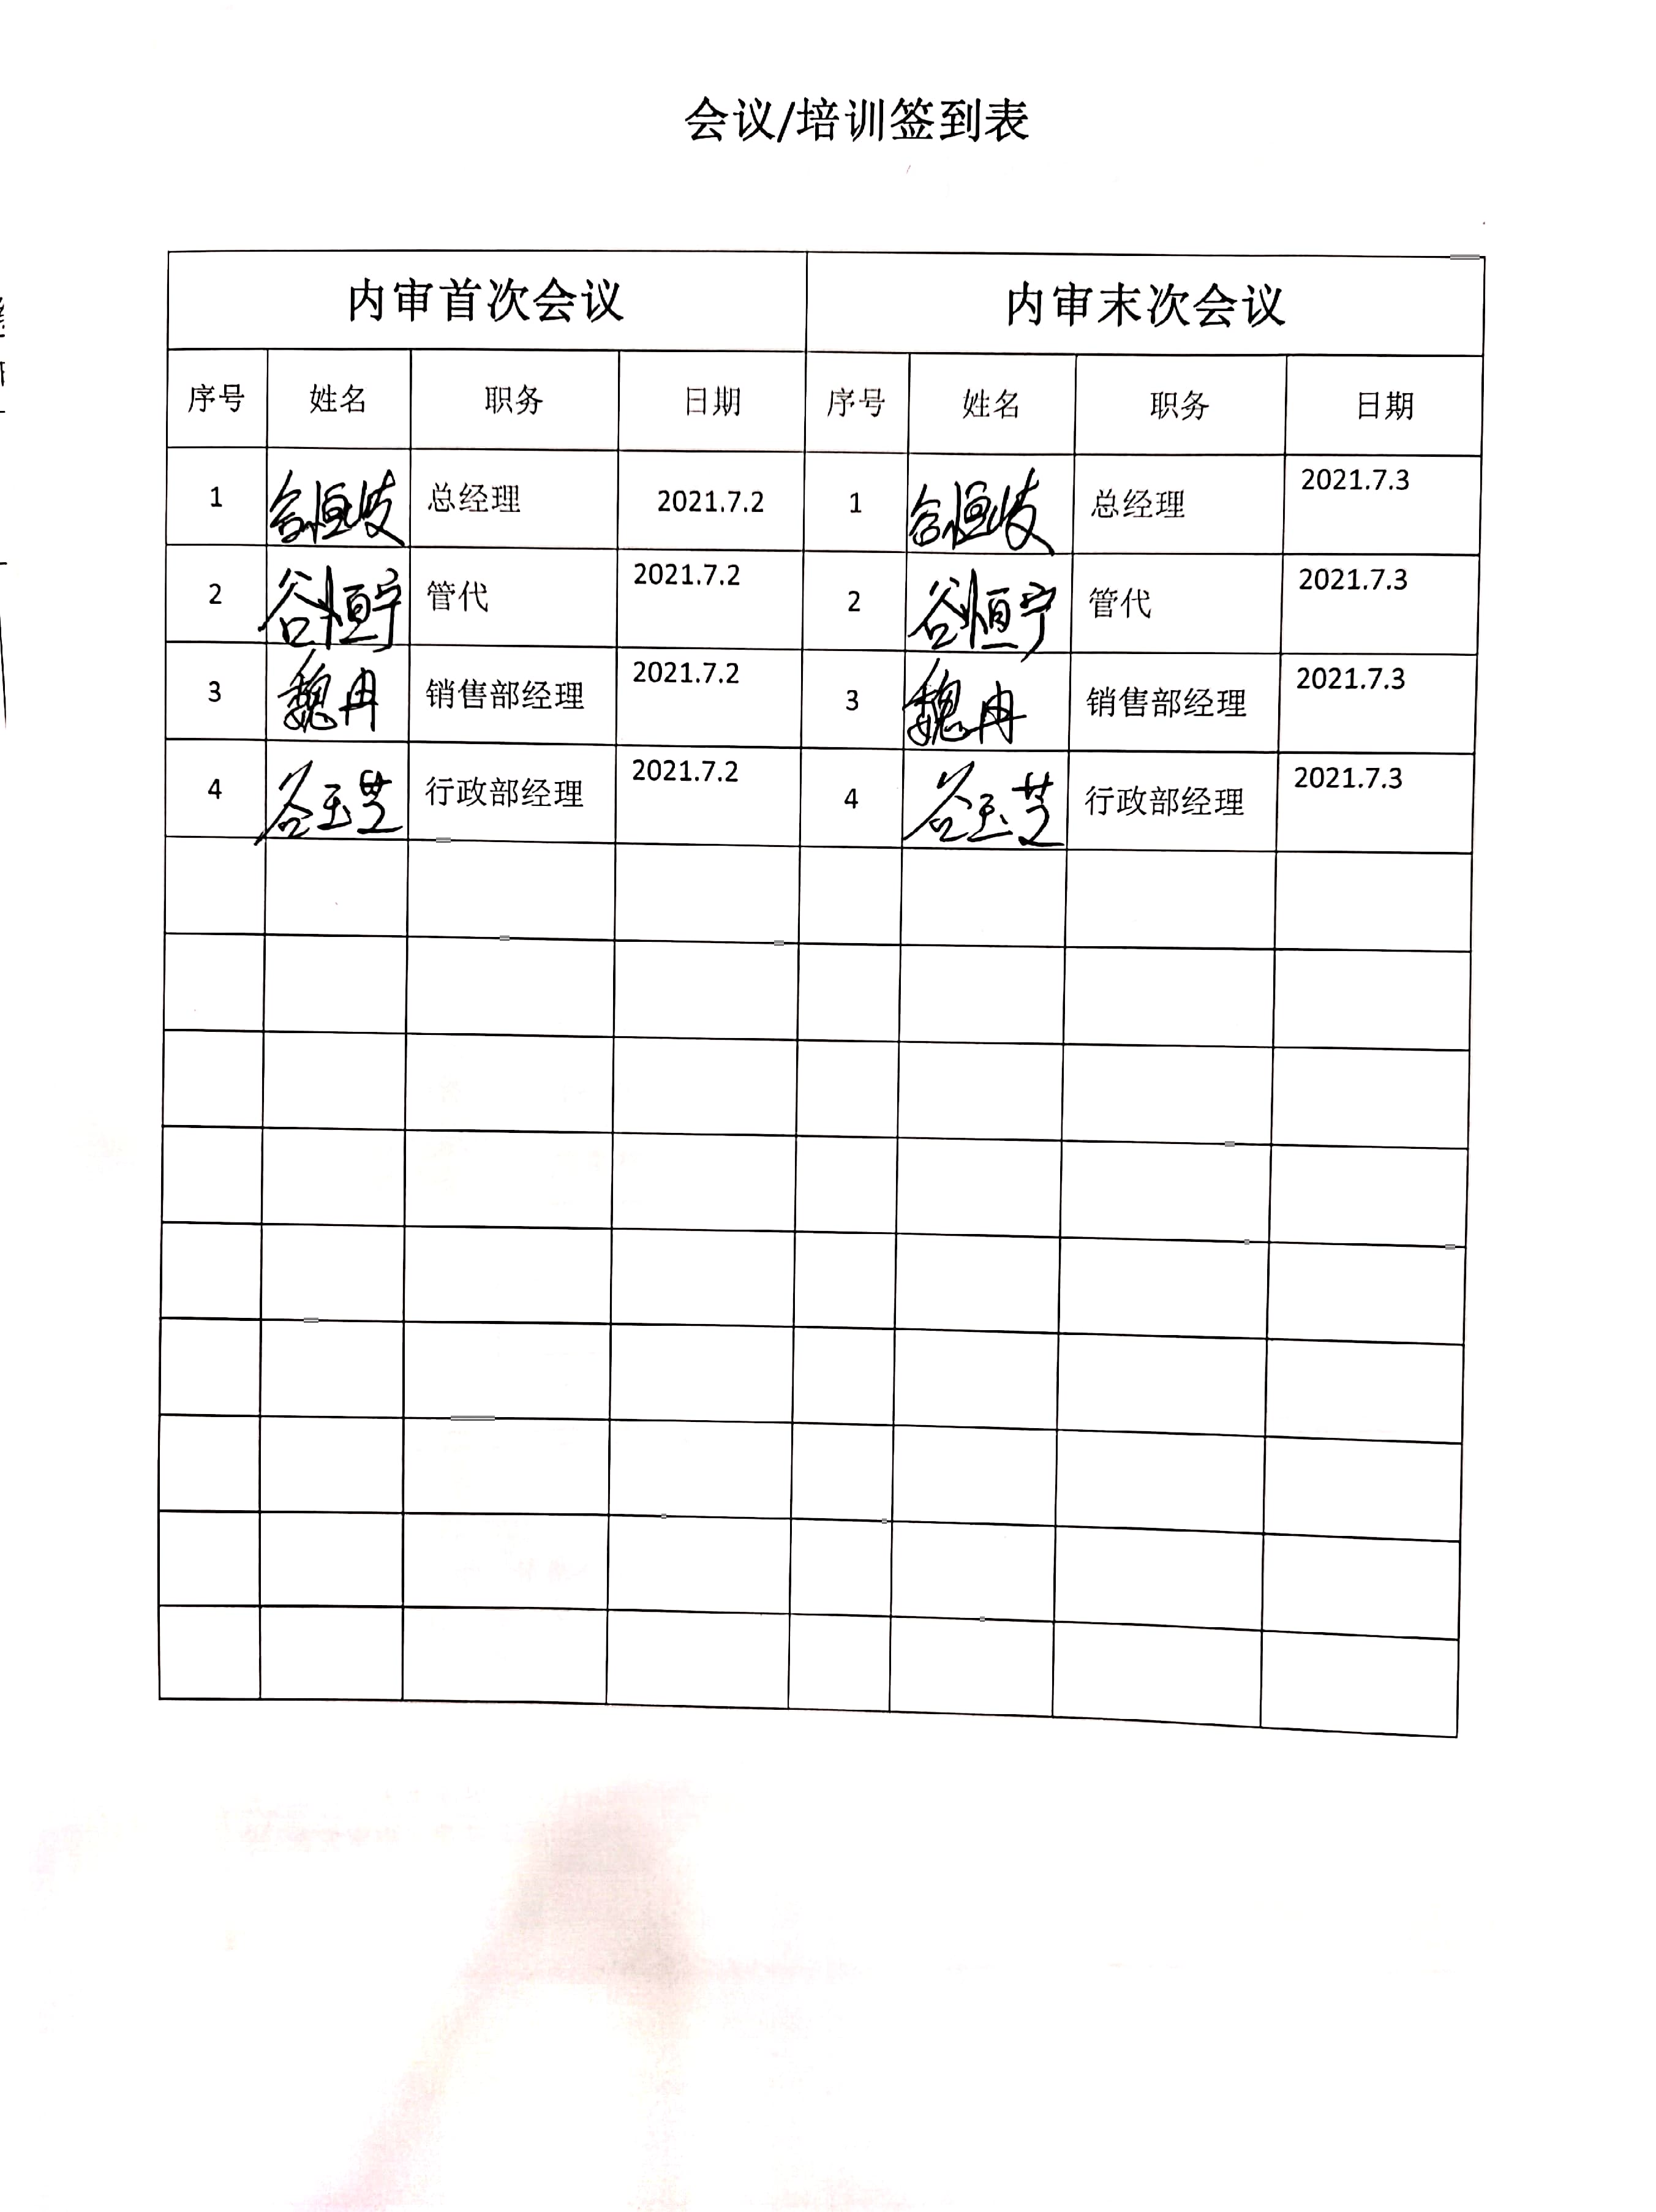 会议/培训签到表
内审首次会议 内审末次会议
序号 姓名 职务 日期 序号 姓名 职务 日期
1 谷恒岐 总经理 2021.7.2 1 谷恒岐 总经理 2021.7.3
2 谷恒宁 管代 2021.7.2 2 谷恒宁 管代 2021.7.3
3 魏冉 销售部经理 2021.7.2 3 魏冉 销售部经理 2021.7.3
4 谷玉芝 行政部经理 2021.7.2 4 谷玉芝 行政部经理 2021.7.3